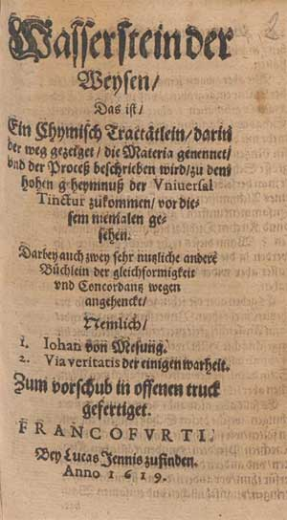 Wasserstein der
Weysen/
Das ist/
Ein Chymisch Tractätlein/ darin
der weg gezeiget/ die Materia genennet/
vnd der Proceß beschrieben wird/ zu dem
hohen geheymnuß der Vniuersal
Tinctur zukommen/ vor die-
sem niemalen ge-
sehen.
Darbey auch zwey sehr nutzliche andere
Büchlein der gleichformigkeit
vnd Concordantz wegen
angehenckt/
Nemlich/
1. Iohan von Mesung.
2. Via veritatis der einigen warheit.
Zum vorschub in offenen truck
gefertiget.
FRANCOFVRTI.
Bey Lucas Jennis zufinden.
Anno 1619.